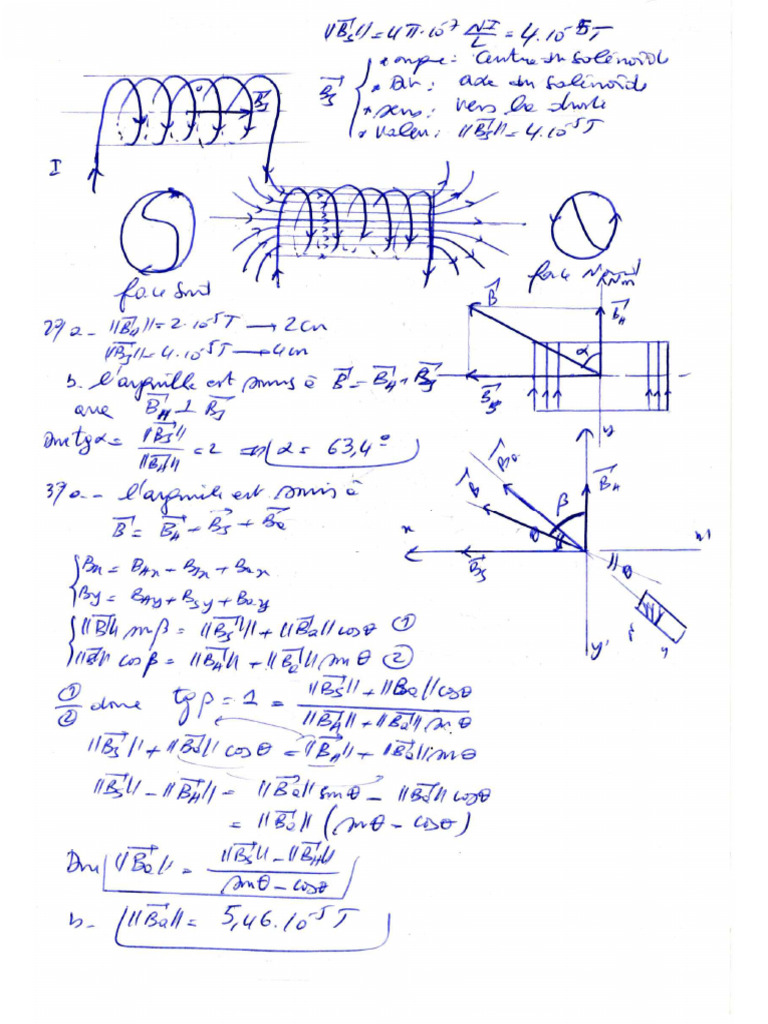 ||B⃗s|| = 4π.10⁻⁷ NI/L = 4.10⁻⁵T
B⃗s
Centre du solénoïde
axe du solénoïde
* sens : vers la droite
* valeur : ||B⃗s|| = 4.10⁻⁵T
B⃗s
I
S
N
face Sud
face Nord
2°/ a- ||B⃗H|| = 2.10⁻⁵T → 2cm
||B⃗s|| = 4.10⁻⁵T → 4cm
B⃗
B⃗H
α
B⃗s
b. l'aiguille est soumis à B⃗ = B⃗H + B⃗s
avec B⃗H ⊥ B⃗s
donc tgα = ||B⃗s||/||B⃗H|| = 2 => α = 63,4°
3°/ a- l'aiguille est soumis à
B⃗ = B⃗H + B⃗s + B⃗a
y
B⃗a
B⃗
B⃗H
β
θ
x
x'
B⃗s
θ
y'
Bx = BHx + Bsx + Bax
By = BHy + Bsy + Bay
||B⃗|| sinβ = ||B⃗s|| + ||B⃗a|| cosθ ①
||B⃗|| cosβ = ||B⃗H|| + ||B⃗a|| sinθ ②
①/② donc tgβ = 1 = (||B⃗s|| + ||Ba|| cosθ)/(||B⃗H|| + ||B⃗a|| sinθ)
||B⃗s|| + ||B⃗a|| cosθ = ||B⃗H|| + ||B⃗a|| sinθ
||B⃗s|| - ||B⃗H|| = ||B⃗a|| sinθ - ||B⃗a|| cosθ
= ||B⃗a|| (sinθ - cosθ)
Donc ||B⃗a|| = (||B⃗s|| - ||B⃗H||)/(sinθ - cosθ)
b- ||B⃗a|| = 5,46.10⁻⁵T